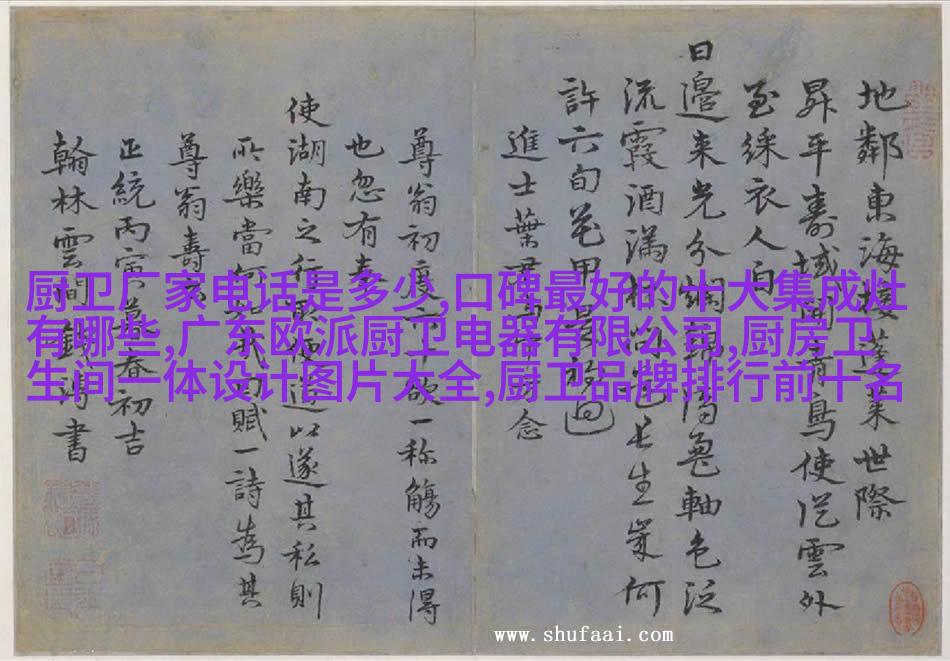 地鄰東海楼蓬莱世際
昇平壽域開青鳥使從雲外
至綵衣人向
日邊来光分錦軸色泛
流霞酒满杯長生何
許六旬花甲回
進士葉念
尊翁初度一称觴而未得
也忽有奉
使湖南之行道以遂其私則
所樂當何賦一詩為其
尊翁壽
正統丙寅孟春初吉
翰林雲間錢溥書
厨卫厂家电话是多少,口碑最好的十大集成灶
有哪些,广东欧派厨卫电器有限公司,厨房卫
生间一体设计图片大全,厨卫品牌排行前十名
www.shufaai.com